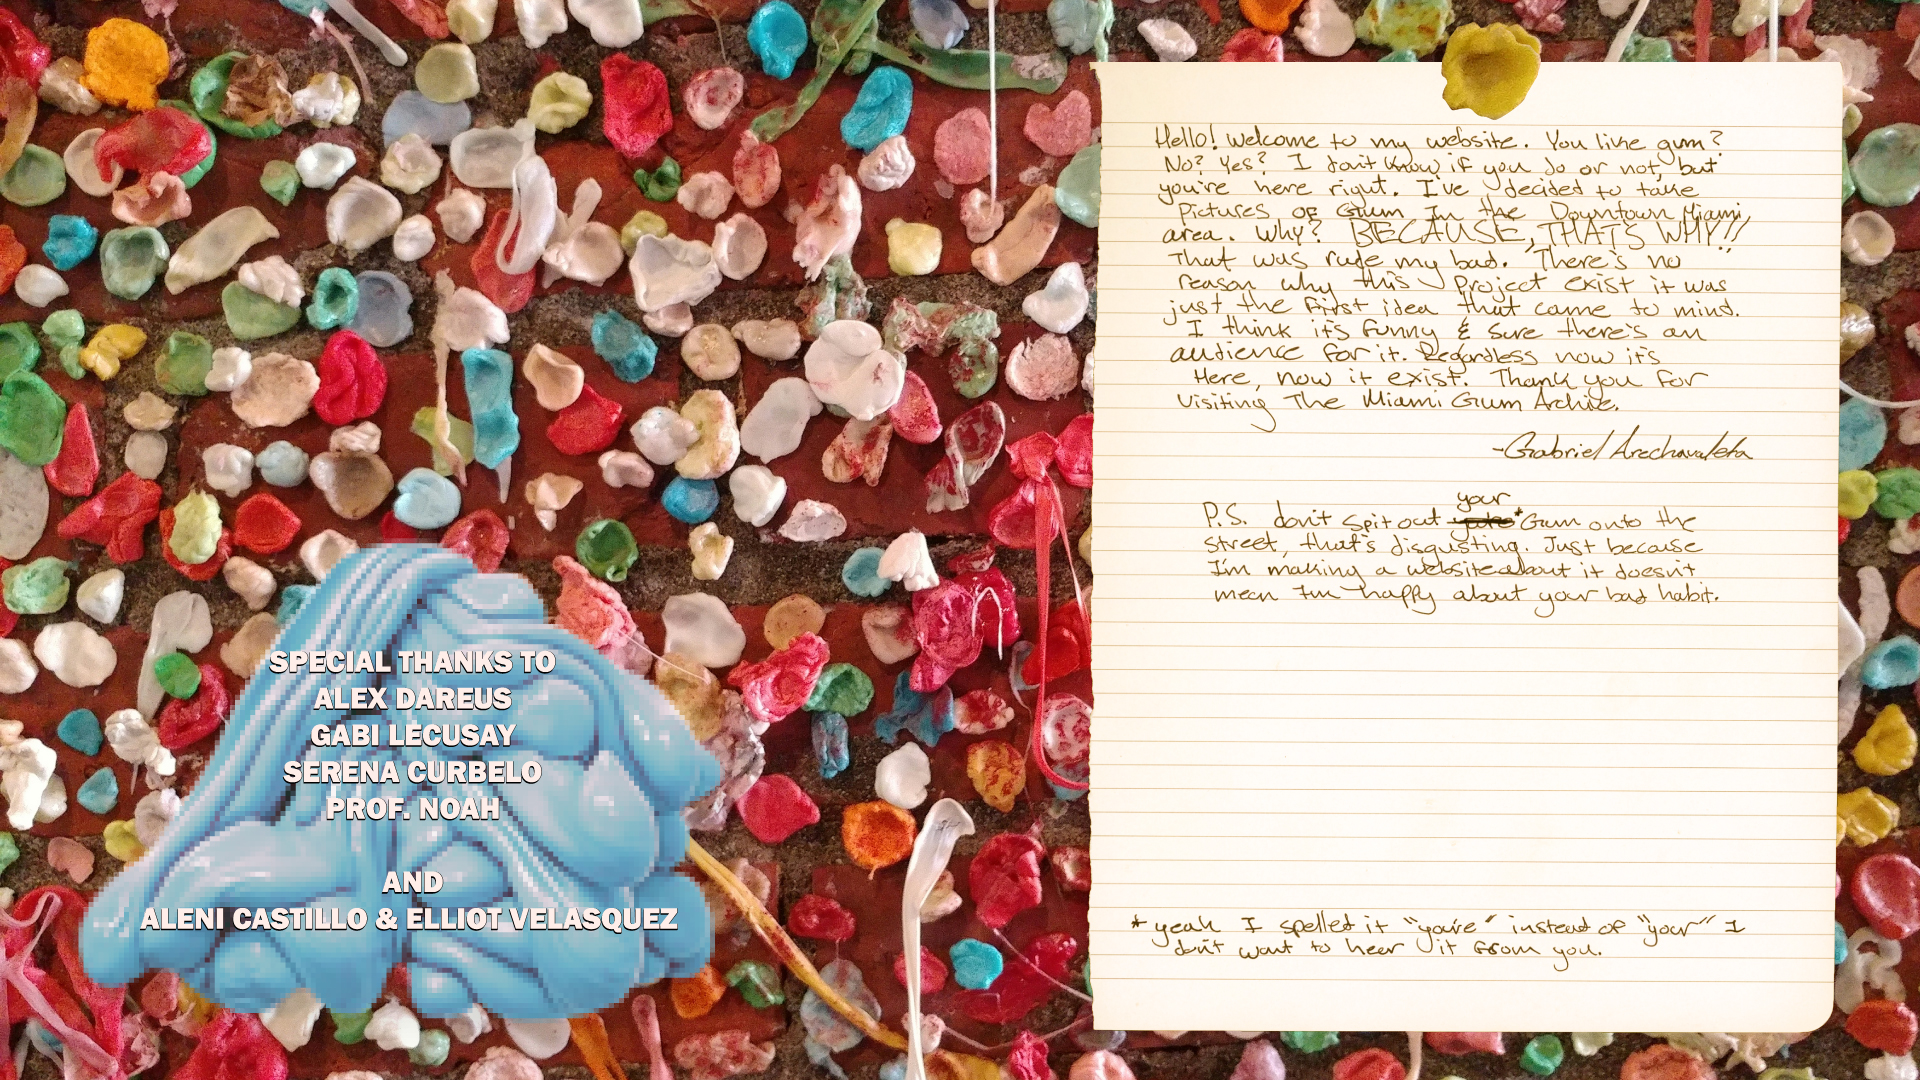 Hello! Welcome to my website. You like gum?
No? Yes? I don't know if you do or not, but
you're here right. I've decided to take
pictures of Gum In the Downtown Miami
area. Why? BECAUSE, THAT'S WHY!!
That was rude my bad. There's no
reason why this project exist it was
just the first idea that came to mind.
I think it's funny & sure there's an
audience for it. Regardless now it's
Here, now it exist. Thank you for
visiting The Miami Gum Archive.
-Gabriel Arechavaleta
your
P.S. don't spit out *Gum onto the
street, that's disgusting. Just because
I'm making a website about it doesn't
mean I'm happy about your bad habit.
* yeah I spelled it "you're" instead of "your" I
don't want to hear it from you.
SPECIAL THANKS TO
ALEX DAREUS
GABI LECUSAY
SERENA CURBELO
PROF. NOAH
AND
ALENI CASTILLO & ELLIOT VELASQUEZ